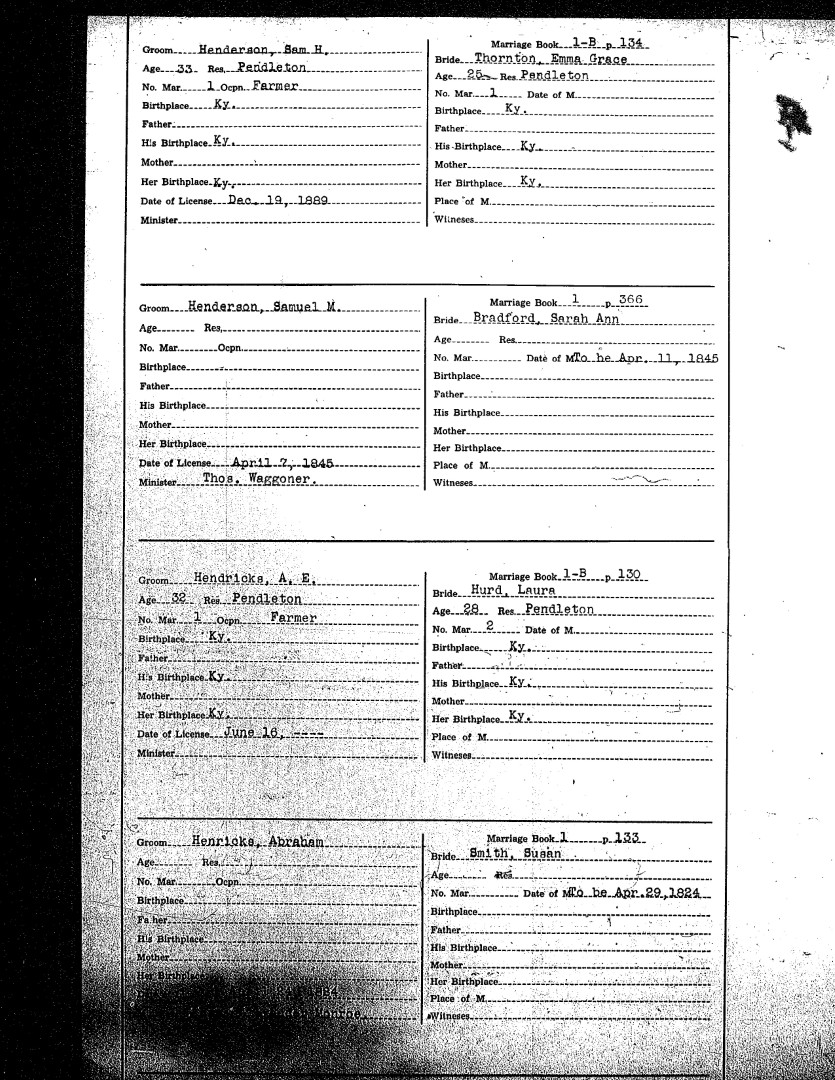 Groom Henderson, Sam H.
Age 33 Res. Pendleton
No. Mar. 1 Ocpn. Farmer
Birthplace Ky.
Father
His Birthplace Ky.
Mother
Her Birthplace Ky.
Date of License Dec. 19, 1889
Minister
Marriage Book 1-B p. 134
Bride Thornton, Emma Grace
Age 25 Res. Pendleton
No. Mar. 1 Date of M.
Birthplace Ky.
Father
His Birthplace Ky.
Mother
Her Birthplace Ky.
Place of M.
Witneses
Groom Henderson, Samuel M.
Age Res.
No. Mar. Ocpn.
Birthplace
Father
His Birthplace
Mother
Her Birthplace
Date of License April 7, 1845
Minister Thos. Waggoner.
Marriage Book 1 p. 366
Bride Bradford, Sarah Ann
Age Res.
No. Mar. Date of M To be Apr. 11, 1845
Birthplace
Father
His Birthplace
Mother
Her Birthplace
Place of M.
Witneses
Groom Hendricks, A. E.
Age 32 Res. Pendleton
No. Mar. 1 Ocpn. Farmer
Birthplace Ky.
Father
His Birthplace Ky.
Mother
Her Birthplace Ky.
Date of License June 16, ----
Minister
Marriage Book 1-B p. 130
Bride Hurd, Laura
Age 28 Res. Pendleton
No. Mar. 2 Date of M.
Birthplace Ky.
Father
His Birthplace Ky.
Mother
Her Birthplace Ky.
Place of M.
Witneses
Groom Henricks, Abraham
Age Res.
No. Mar. Ocpn.
Birthplace
Father
His Birthplace
Mother
Her Birthplace
1824
Monroe.
Marriage Book 1 p. 133
Bride Smith, Susan
Age Res.
No. Mar. Date of M To be Apr. 29, 1824
Birthplace
Father
His Birthplace
Mother
Her Birthplace
Place of M.
Witneses